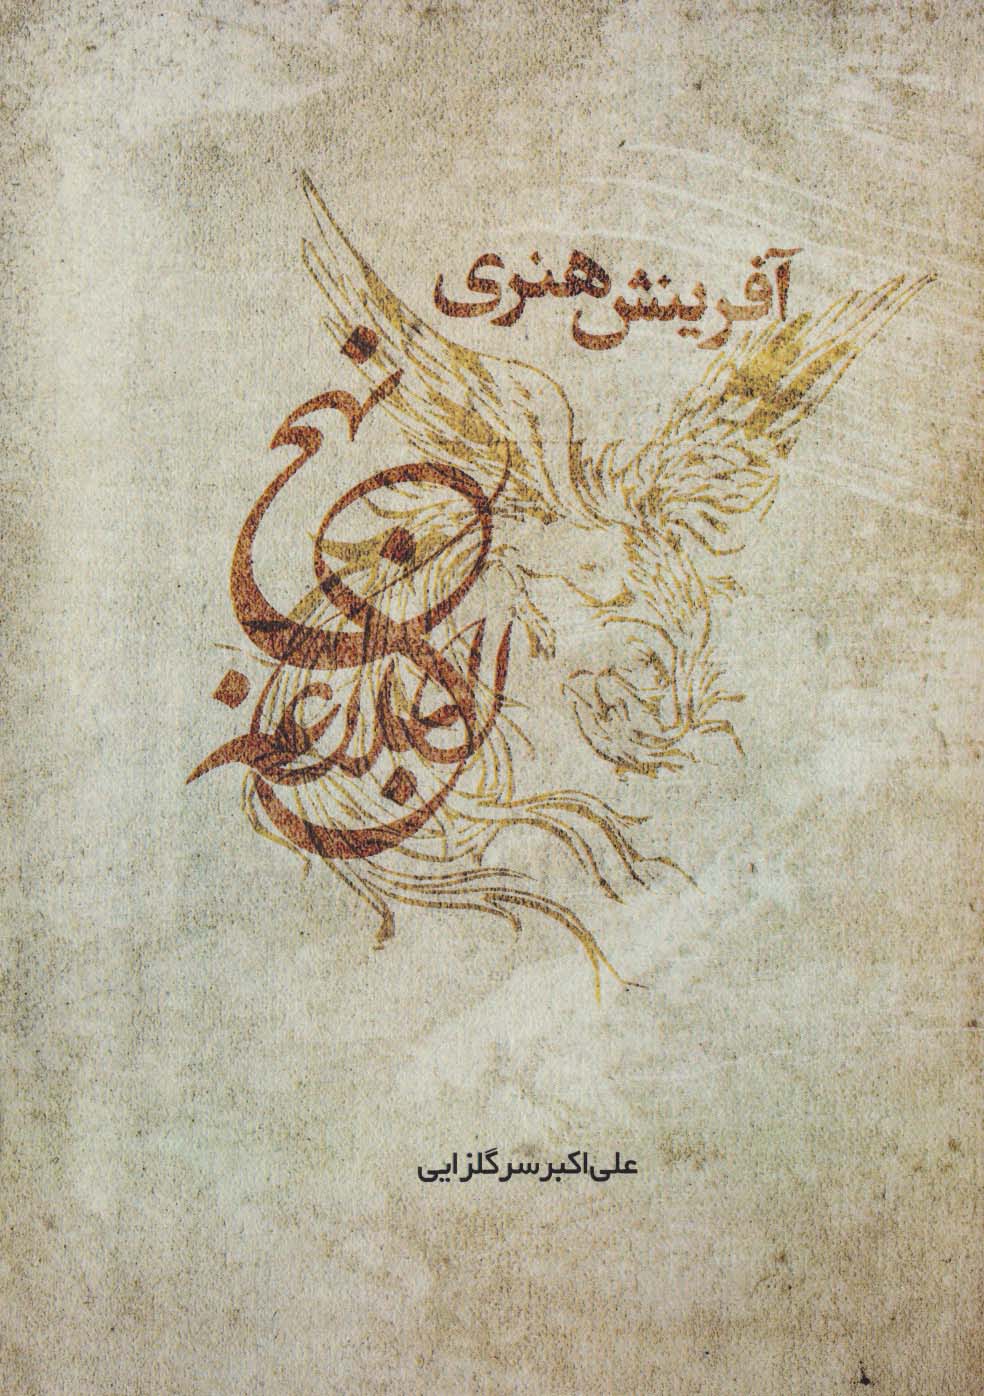 آفرینش هنری
نهج
البلاغه
علی‌اکبر سرگلزایی